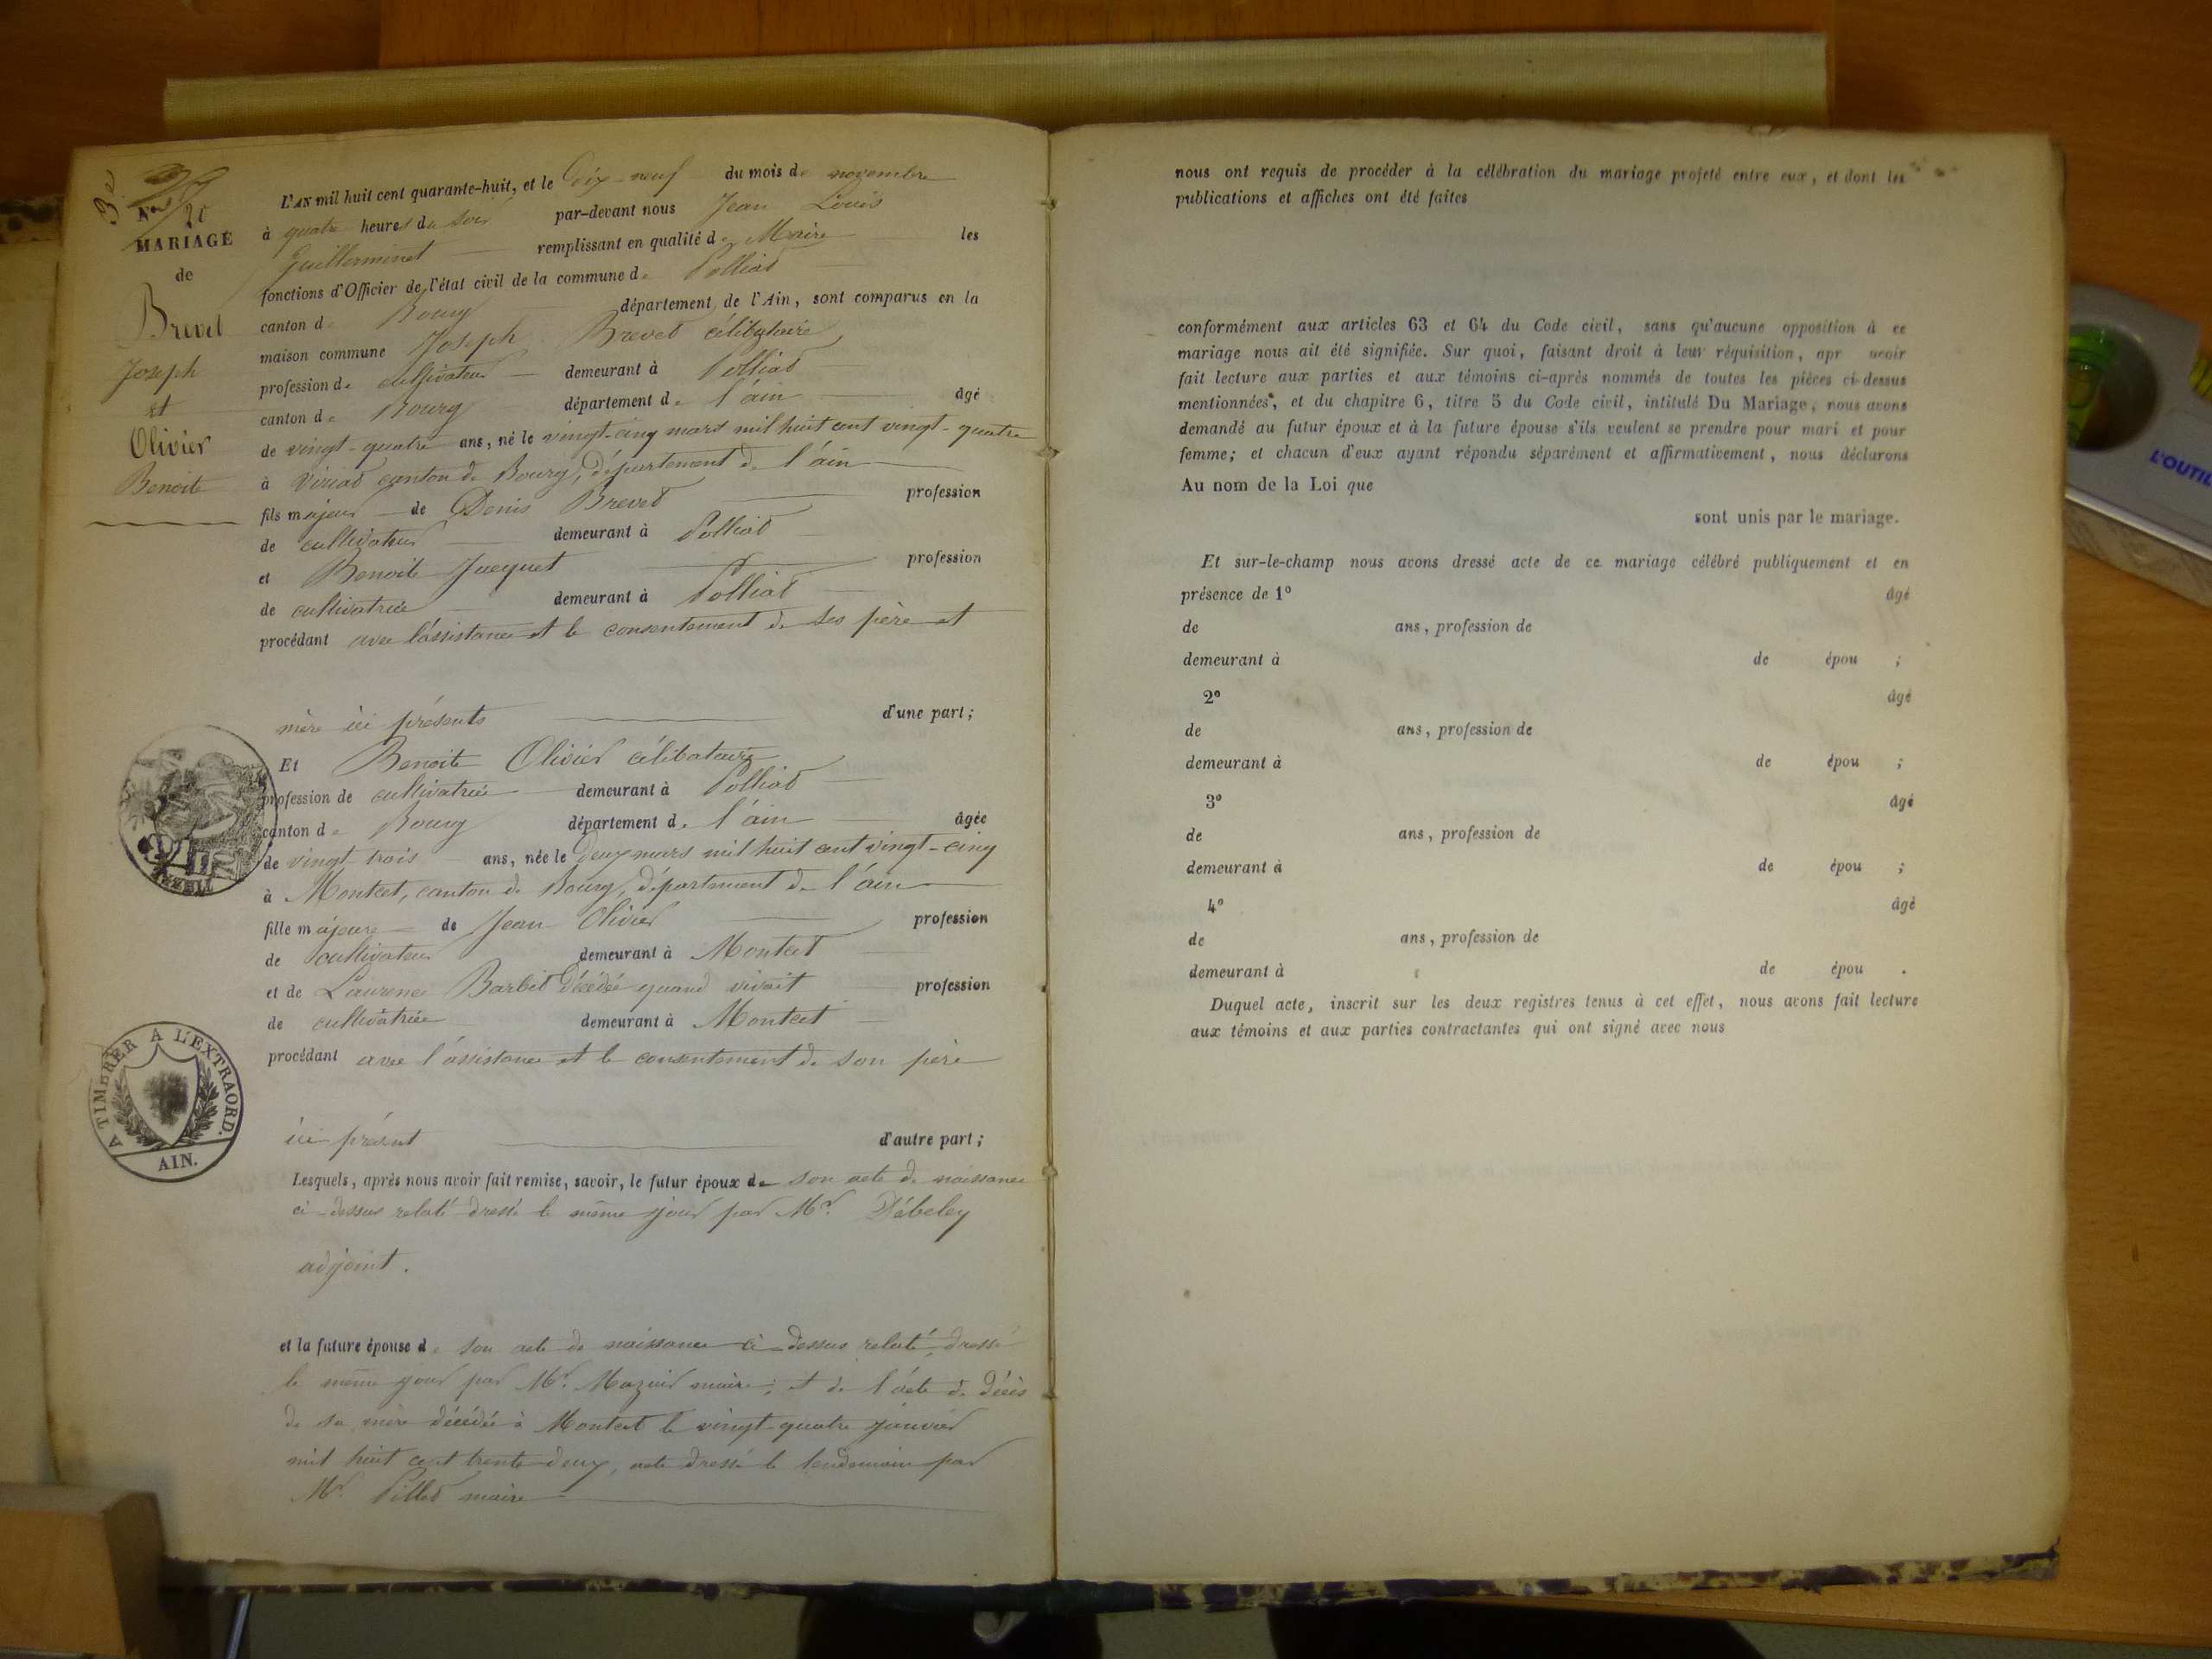 Nos 20
MARIAGE
de
Brevet
Joseph
et
Olivier
Benoite
L'AN mil huit cent quarante-huit, et le dix-neuf du mois de novembre
à quatre heures du soir par-devant nous Jean Louis
Guillerminet remplissant en qualité de Maire les
fonctions d'Officier de l'état civil de la commune de Polliat
canton de Bourg département de l'Ain, sont comparus en la
maison commune Joseph Brevet célibataire
profession de cultivateur demeurant à Polliat
canton de Bourg département de l'ain âgé
de vingt-quatre ans, né le vingt-cinq mars mil huit cent vingt-quatre
à Viriat canton de Bourg, département de l'ain
fils majeur de Denis Brevet profession
de cultivateur demeurant à Polliat
et Benoite Jacquet profession
de cultivatrice demeurant à Polliat
procédant avec l'assistance et le consentement de ses père et
mère ici présents d'une part;
Et Benoite Olivier célibataire
profession de cultivatrice demeurant à Polliat
canton de Bourg département de l'ain âgée
de vingt-trois ans, née le deux mars mil huit cent vingt-cinq
à Montcet, canton de Bourg, département de l'ain
fille majeure de Jean Olivier profession
de cultivateur demeurant à Montcet
et de Laurence Barbet décédée quand vivait profession
de cultivatrice demeurant à Montcet
procédant avec l'assistance et le consentement de son père
ici présent d'autre part;
A TIMBRER A L'EXTRAORD.
AIN.
Lesquels, après nous avoir fait remise, savoir, le futur époux de son acte de naissance
ci-dessus relaté dressé le même jour par Mr. Débeley
adjoint.
et la future épouse de son acte de naissance ci-dessus relaté, dressé
le même jour par Mr. Mazuir maire; et de l'acte de décès
de sa mère décédée à Montcet le vingt-quatre janvier
mil huit cent trente deux, acte dressé le lendemain par
Mr. Pillet maire
nous ont requis de procéder à la célébration du mariage projeté entre eux, et dont les
publications et affiches ont été faites
conformément aux articles 63 et 64 du Code civil, sans qu'aucune opposition à ce
mariage nous ait été signifiée. Sur quoi, faisant droit à leur réquisition, apr avoir
fait lecture aux parties et aux témoins ci-après nommés de toutes les pièces ci-dessus
mentionnées, et du chapitre 6, titre 5 du Code civil, intitulé Du Mariage, nous avons
demandé au futur époux et à la future épouse s'ils veulent se prendre pour mari et pour
femme; et chacun d'eux ayant répondu séparément et affirmativement, nous déclarons
Au nom de la Loi que
sont unis par le mariage.
Et sur-le-champ nous avons dressé acte de ce mariage célébré publiquement et en
présence de 1º âgé
de ans, profession de
demeurant à de épou ;
2º âgé
de ans, profession de
demeurant à de épou ;
3º âgé
de ans, profession de
demeurant à de épou ;
4º âgé
de ans, profession de
demeurant à de épou .
Duquel acte, inscrit sur les deux registres tenus à cet effet, nous avons fait lecture
aux témoins et aux parties contractantes qui ont signé avec nous
L'OUTIL